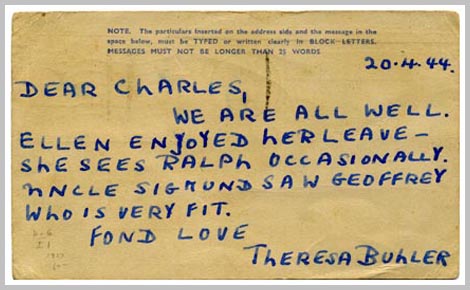 NOTE. The particulars inserted on the address side and the message in the
space below, must be TYPED or written clearly in BLOCK LETTERS.
MESSAGES MUST NOT BE LONGER THAN 25 WORDS
20.4.44.
DEAR CHARLES,
WE ARE ALL WELL.
ELLEN ENJOYED HER LEAVE—
SHE SEES RALPH OCCASIONALLY.
UNCLE SIGMUND SAW GEOFFREY
WHO IS VERY FIT.
FOND LOVE
THERESA BUHLER